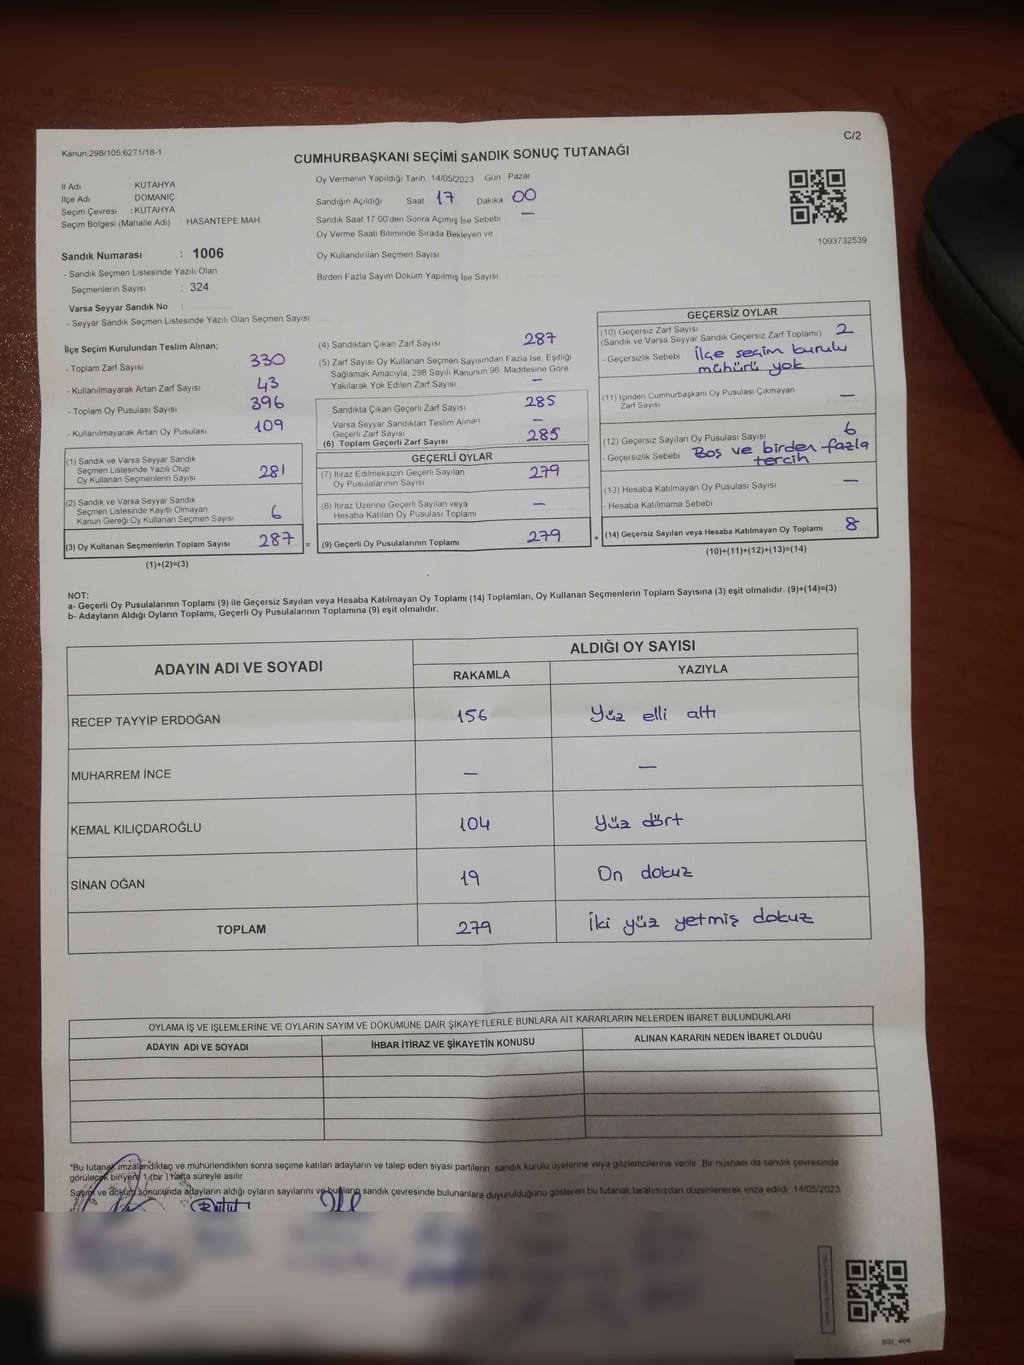 Kanun:298/105,6271/18-1
C/2
CUMHURBAŞKANI SEÇİMİ SANDIK SONUÇ TUTANAĞI
İl Adı KUTAHYA
İlçe Adı DOMANİÇ
Seçim Çevresi : KUTAHYA
Seçim Bölgesi (Mahalle Adı) HASANTEPE MAH.
Sandık Numarası : 1006
- Sandık Seçmen Listesinde Yazılı Olan
Seçmenlerin Sayısı : 324
Varsa Seyyar Sandık No :
- Seyyar Sandık Seçmen Listesinde Yazılı Olan Seçmen Sayısı
Oy Vermenin Yapıldığı Tarih 14/05/2023 Gün Pazar
Sandığın Açıldığı Saat 17 Dakika 00
Sandık Saat 17:00'den Sonra Açımış İse Sebebi —
Oy Verme Saati Bitiminde Sırada Bekleyen ve
Oy Kullandırılan Seçmen Sayısı
Birden Fazla Sayım Döküm Yapılmış İse Sayısı
1093732539
İlçe Seçim Kurulundan Teslim Alınan;
- Toplam Zarf Sayısı 330
- Kullanılmayarak Artan Zarf Sayısı 43
- Toplam Oy Pusulası Sayısı 396
- Kullanılmayarak Artan Oy Pusulası 109
(1) Sandık ve Varsa Seyyar Sandık
Seçmen Listesinde Yazılı Olup
Oy Kullanan Seçmenlerin Sayısı 281
(2) Sandık ve Varsa Seyyar Sandık
Seçmen Listesinde Kayıtlı Olmayan
Kanun Gereği Oy Kullanan Seçmen Sayısı 6
(3) Oy Kullanan Seçmenlerin Toplam Sayısı 287 =
(1)+(2)=(3)
(4) Sandıktan Çıkan Zarf Sayısı 287
(5) Zarf Sayısı Oy Kullanan Seçmen Sayısından Fazla İse, Eşitliği
Sağlamak Amacıyla, 298 Sayılı Kanunun 98. Maddesine Göre
Yakılarak Yok Edilen Zarf Sayısı —
Sandıkta Çıkan Geçerli Zarf Sayısı 285
Varsa Seyyar Sandıktan Teslim Alınan
Geçerli Zarf Sayısı —
(6) Toplam Geçerli Zarf Sayısı 285
GEÇERLİ OYLAR
(7) İtiraz Edilmeksizin Geçerli Sayılan
Oy Pusulasının Sayısı 279
(8) İtiraz Üzerine Geçerli Sayılan veya
Hesaba Katılan Oy Pusulası Toplamı —
(9) Geçerli Oy Pusulalarının Toplamı 279 +
GEÇERSİZ OYLAR
(10) Geçersiz Zarf Sayısı
(Sandık ve Varsa Seyyar Sandık Geçersiz Zarf Toplamı) 2
- Geçersizlik Sebebi İlçe seçim kurulu
mühürü yok
(11) İçinden Cumhurbaşkanı Oy Pusulası Çıkmayan
Zarf Sayısı —
(12) Geçersiz Sayılan Oy Pusulası Sayısı 6
- Geçersizlik Sebebi Boş ve birden fazla
tercih
(13) Hesaba Katılmayan Oy Pusulası Sayısı —
- Hesaba Katılmama Sebebi
(14) Geçersiz Sayılan veya Hesaba Katılmayan Oy Toplamı 8
(10)+(11)+(12)+(13)=(14)
NOT:
a- Geçerli Oy Pusulalarının Toplamı (9) ile Geçersiz Sayılan veya Hesaba Katılmayan Oy Toplamı (14) Toplamları, Oy Kullanan Seçmenlerin Toplam Sayısına (3) eşit olmalıdır. (9)+(14)=(3)
b- Adayların Aldığı Oyların Toplamı, Geçerli Oy Pusulalarının Toplamına (9) eşit olmalıdır.
ADAYIN ADI VE SOYADI
ALDIĞI OY SAYISI
RAKAMLA YAZIYLA
RECEP TAYYİP ERDOĞAN 156 Yüz elli altı
MUHARREM İNCE — —
KEMAL KILIÇDAROĞLU 104 Yüz dört
SİNAN OĞAN 19 On dokuz
TOPLAM 279 İki yüz yetmiş dokuz
OYLAMA İŞ VE İŞLEMLERİNE VE OYLARIN SAYIM VE DÖKÜMÜNE DAİR ŞİKAYETLERLE BUNLARA AİT KARARLARIN NELERDEN İBARET BULUNDUKLARI
ADAYIN ADI VE SOYADI İHBAR İTİRAZ VE ŞİKAYETİN KONUSU ALINAN KARARIN NEDEN İBARET OLDUĞU
*Bu tutanak imzalandıktan ve mühürlendikten sonra seçime katılan adayların ve talep eden siyasi partilerin sandık kurulu üyelerine veya gözlemcilerine verilir. Bir nüshası da sandık çevresinde
görülecek bir yere 1 (bir) hafta süreyle asılır
Sayım ve döküm sonucunda adayların aldığı oyların sayılarını ve bunların sandık çevresinde bulunanlara duyurulduğunu gösteren bu tutanak tarafımızdan düzenlenerek imza edildi 14/05/2023